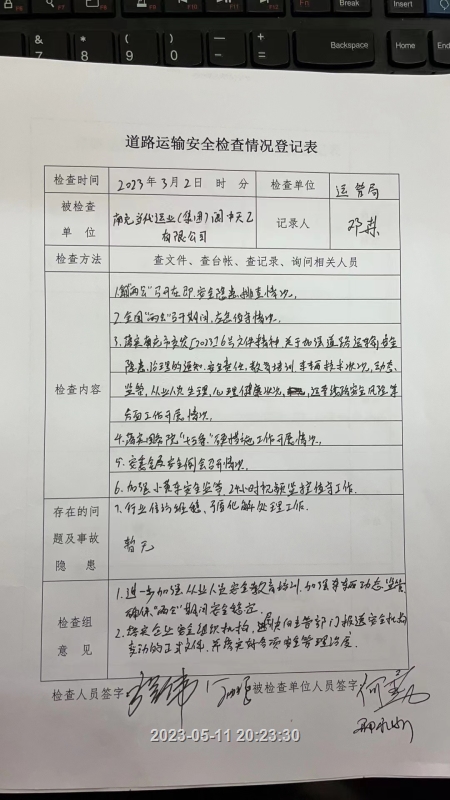 Break
Insert
&
7
*
8
(
9
)
0
Backspace
Home
End
道路运输安全检查情况登记表
检查时间 2023年3月2日 时 分 检查单位 运管局
被检查
单 位
南充当代运业(集团)阆中天乙
有限公司
记录人 邓
检查方法 查文件、查台帐、查记录、询问相关人员
检查内容
1."两会"召开在即,安全隐患排查情况。
2.全国"两会"召开期间,应急值守情况。
3.落实南充市交发[2023]16号文件精神 关于加强道路运输安全
隐患治理的通知.安全责任.教育培训.车辆技术状况.动态
监管,从业人员生理,心理健康状况,运营线路安全风险等
方面工作开展情况。
4.落实国务院"十五条"硬措施工作开展情况。
5.安委会及安全例会召开情况。
6.加强小货车安全监管、24小时视频监控值守工作.
7.行业信访维稳、矛盾化解处理工作.
存在的问
题及事故
隐 患
暂无
检查组
意 见
1.进一步加强从业人员安全教育培训.加强车辆动态监管
确保"两会"期间安全稳定.
2.落实企业安全组织机构,尽快向主管部门报送安全机构
变动的正式文件.并落实好各项安全管理制度.
检查人员签字: 被检查单位人员签字:
2023-05-11 20:23:30